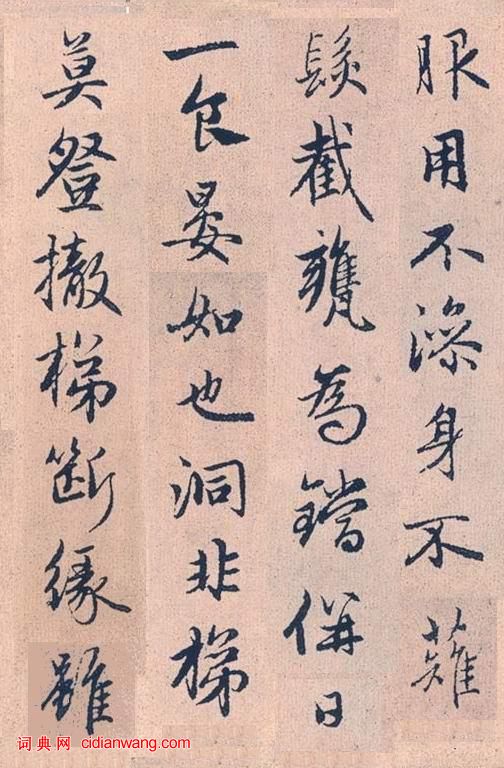 服用不澡身不薙
髮截甕為鐺併日
一食晏如也洞非梯
莫登撤梯斷緣雖
词典网 cidianwang.com